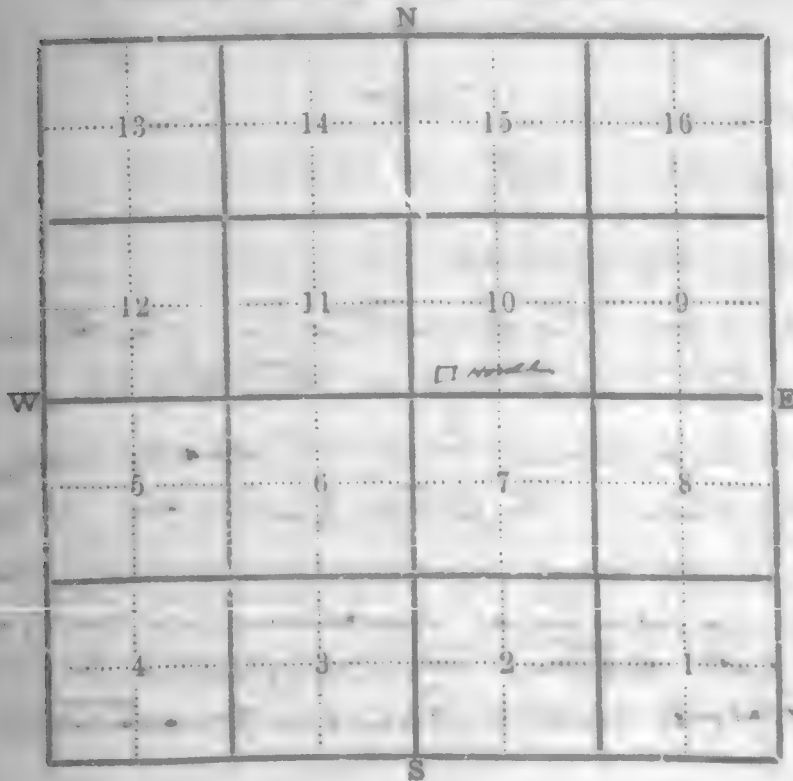 N
13 14 15 16
12 11 10 9
W E
5 6 7 8
4 3 2 1
S